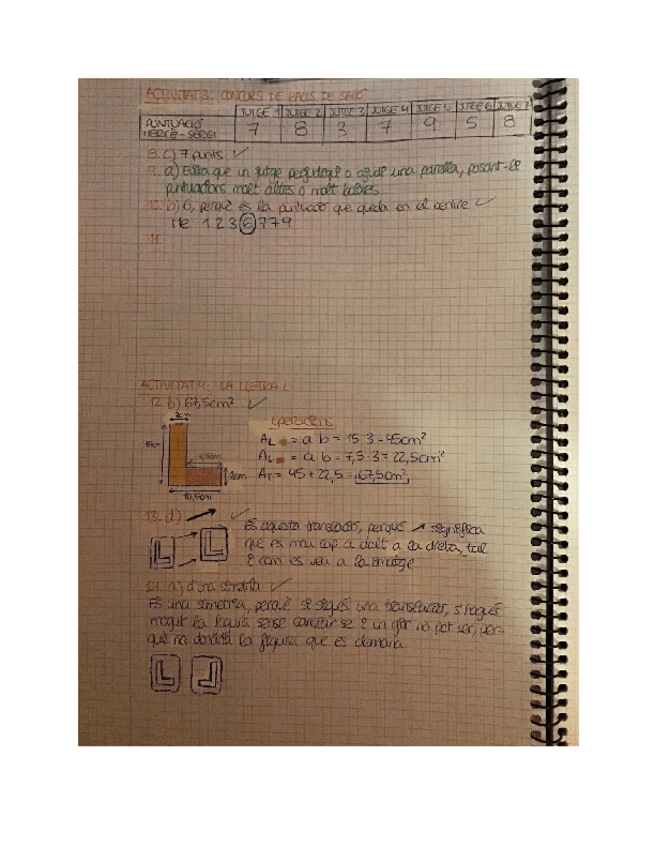 ACTIVITAT 3: CONCURS DE BALLS DE SALÓ
JUTGE 1 JUTGE 2 JUTGE 3 JUTGE 4 JUTGE 5 JUTGE 6 JUTGE 7
PUNTUACIÓ
MERCÈ-SERGI 7 8 3 7 9 5 8
8. c) 7 punts ✓
9. a) Evita que un jutge perjudiqui o ajudi una parella, posant-li
puntuacions molt altes o molt baixes.
10. b) 6, perquè és la puntuació que queda en el centre ✓
Me 1 2 3 6 7 7 9
11
ACTIVITAT 4: LA LLETRA L
12. b) 67,5cm² ✓
3cm
15cm
7,5cm
3cm
10,5cm
OPERACIONS
A = a · b = 15 · 3 = 45cm²
A = a · b = 7,5 · 3 = 22,5cm²
AT = 45 + 22,5 = 67,5cm²
13. d) ↗ ✓
L L
És aquesta translació, perquè ↗ significa
que es mou cap a dalt a la dreta, tal
i com es veu a la imatge
14. a) d'una simetria ✓
És una simetria, perquè si sigués una translació, s'hagués
mogut la figura sense canviar-se i un gir no pot ser, per-
què no donaria la figura que es demana.